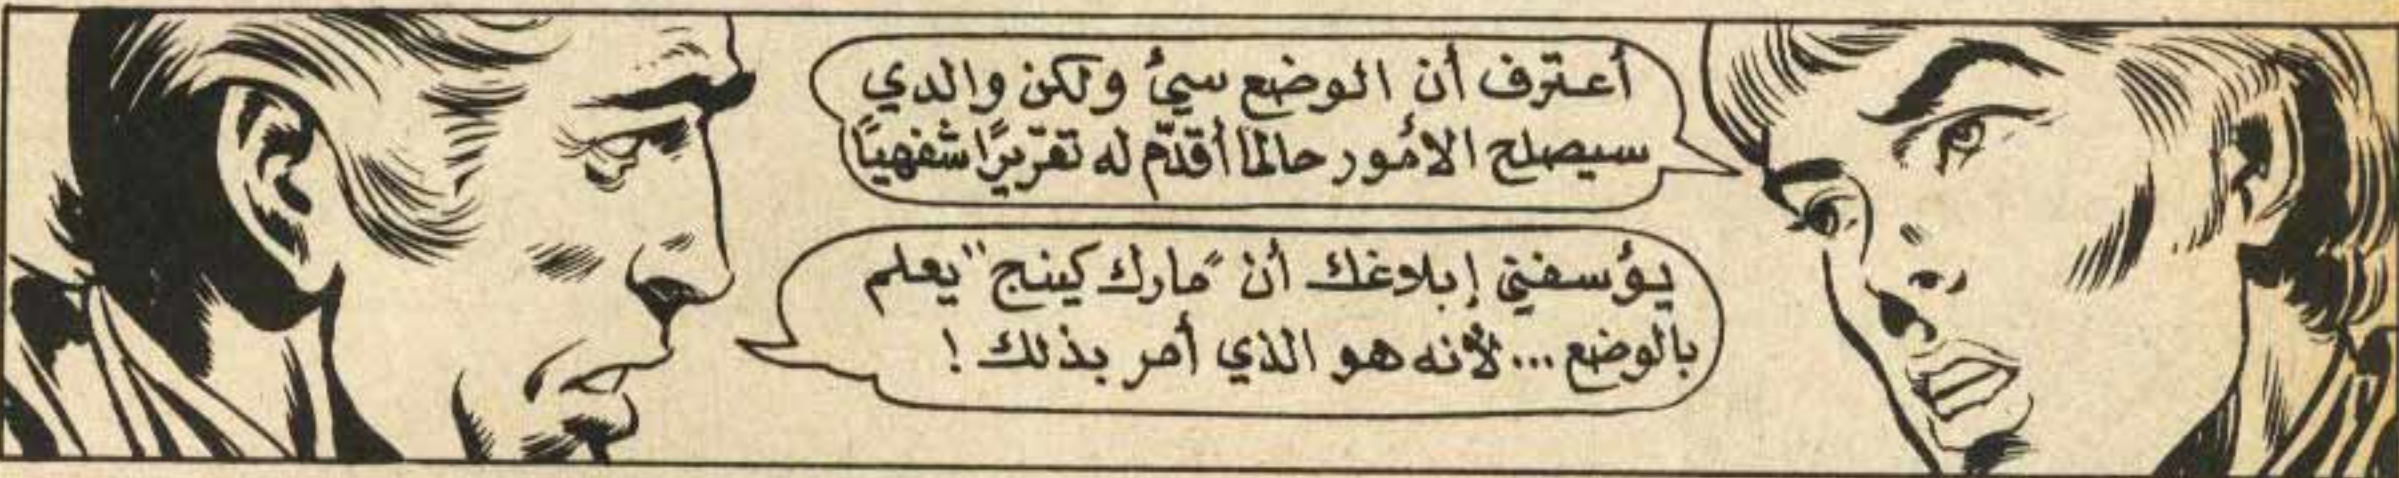 أعترف أن الوضع سيئ ولكن والدي
سيصلح الأمور حالما أقدّم له تقريرًا شفهيًا
يؤسفني إبلاغك أن "مارك كينج" يعلم
بالوضع... لأنه هو الذي أمر بذلك!